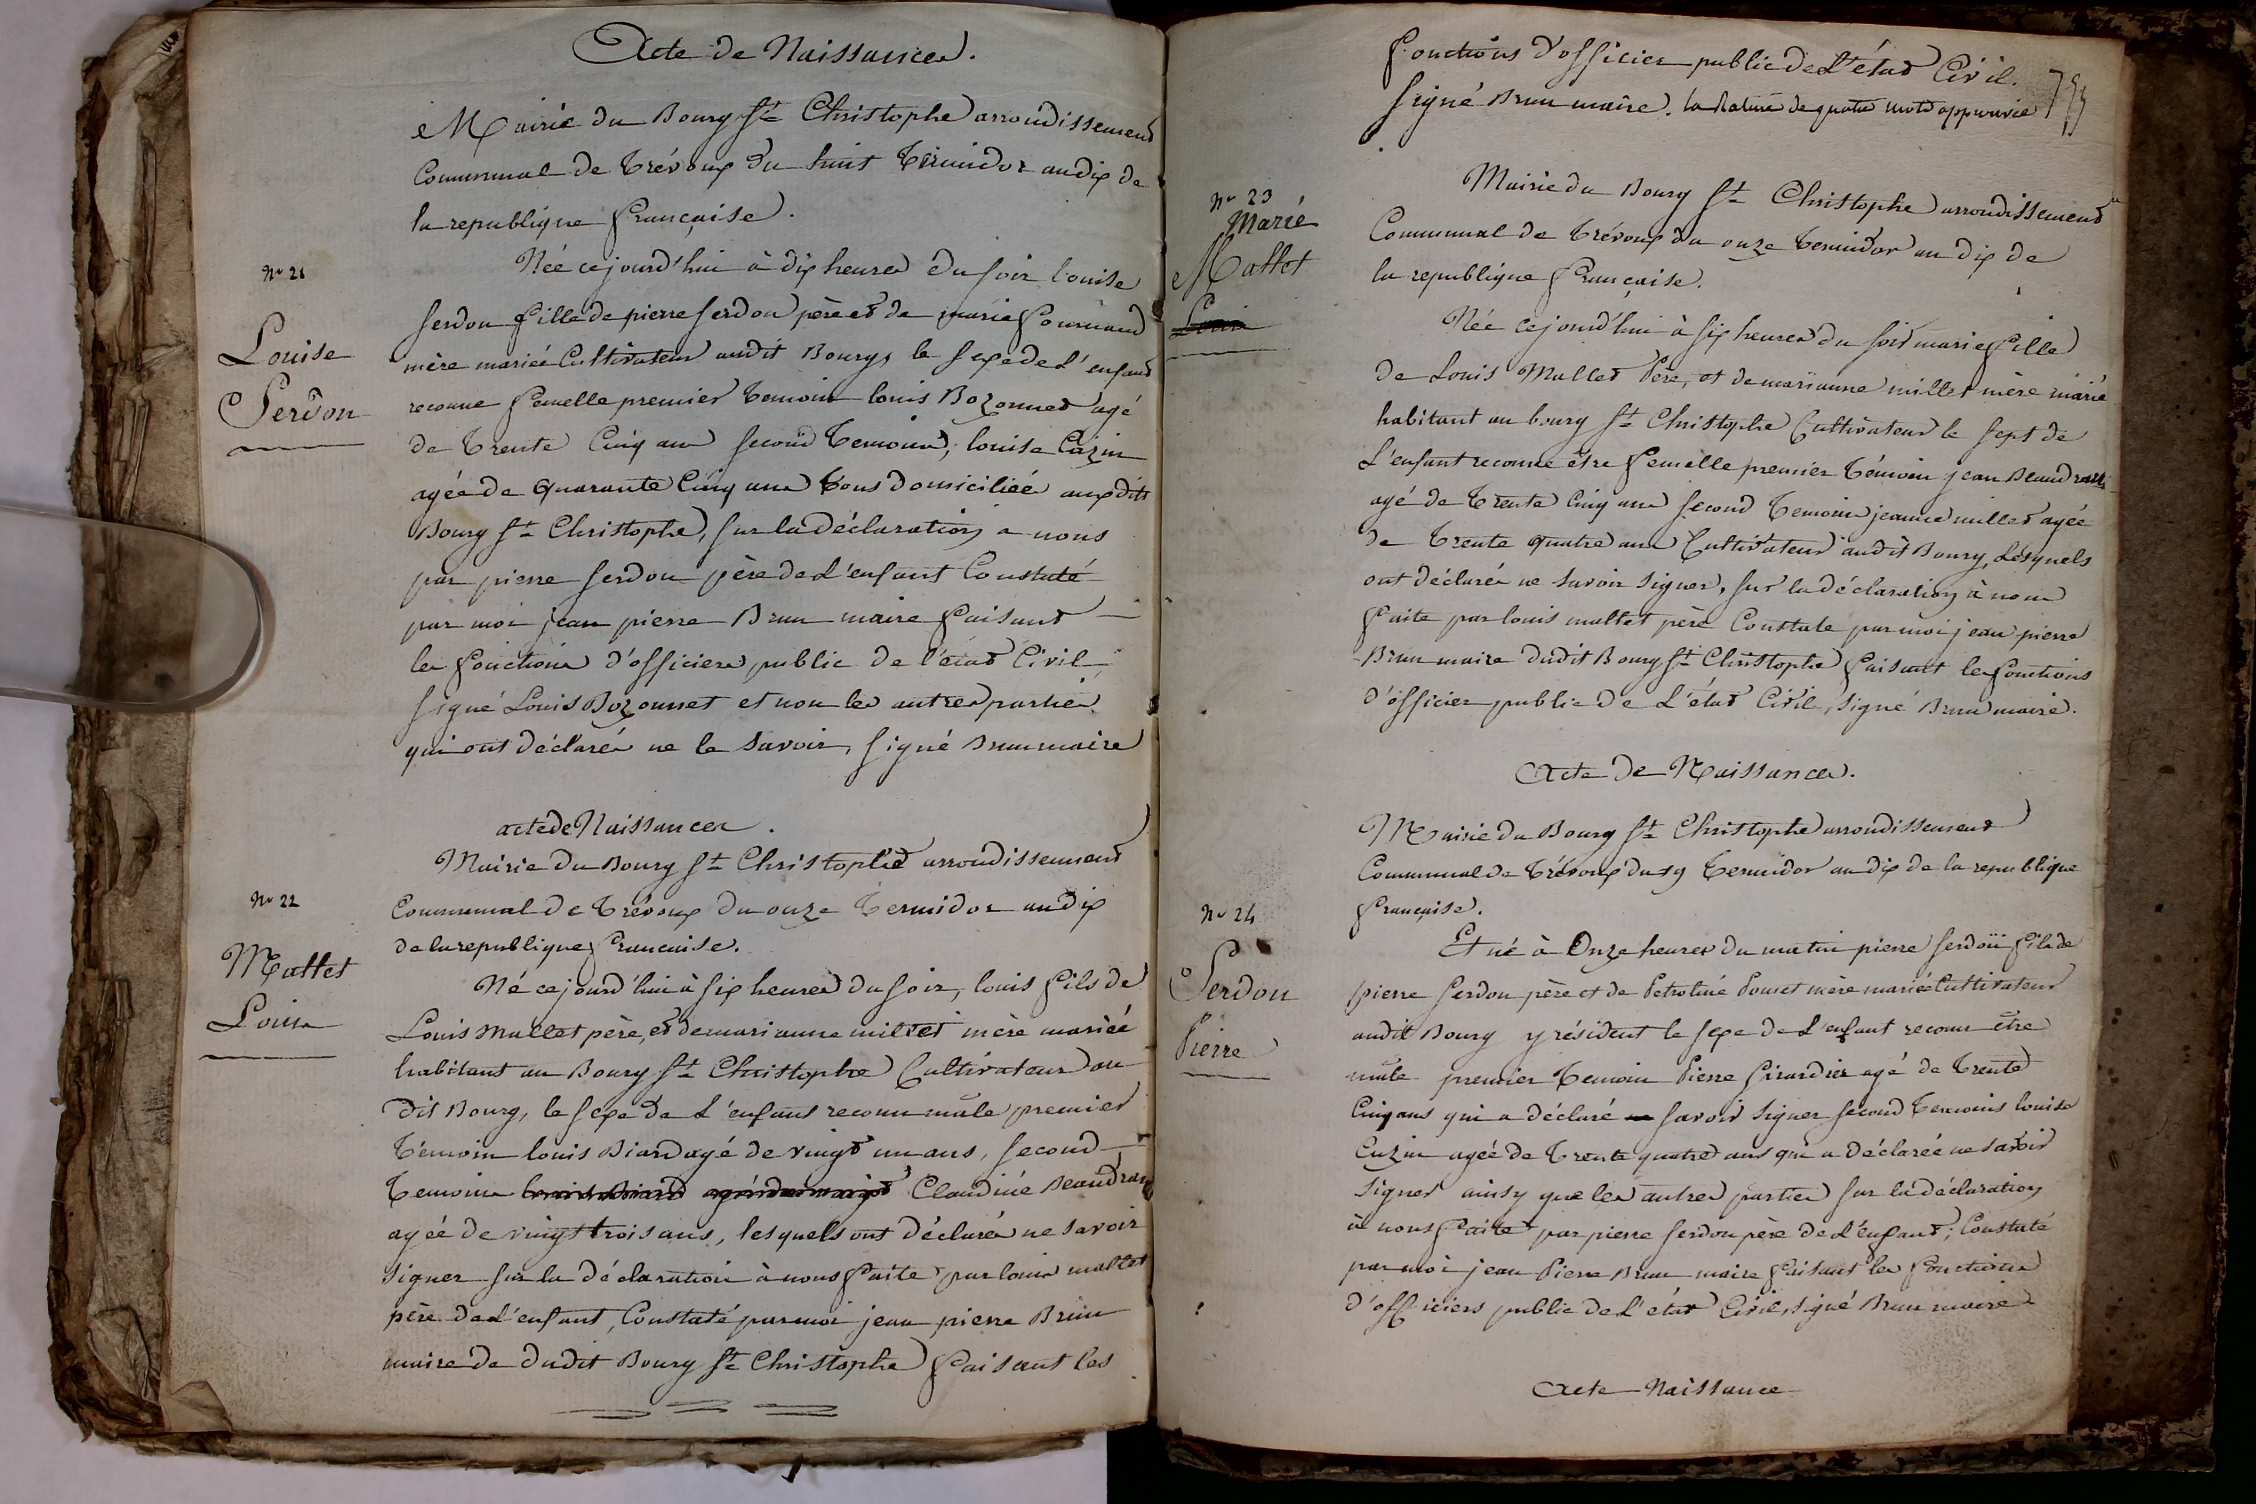 Acte de Naissance.
Mairie du Bourg St Christophe arrondissement
Communal de Trévoux du huit Termidor an dix de
la republique française.
Née cejourd'hui à dix heures du soir louise
No 21
Louise
Serdon
Serdon fille de pierre Serdon père et de marie
mère mariée Cultivateur audit Bourg, le sexe de L'enfant
reconnu femelle premier temoin louis Bozonnet agé
de trente Cinq ans second temoin, louise Cazin
agée de quarante Cinq ans tous domiciliée audit
Bourg St Christophe, sur la déclaration a nous
par pierre Serdon père de L'enfant Constaté
par moi jean pierre Brun maire faisant
les fonctions d'officier public de l'état Civil
signé Louis Bozonnet et non les autres parties
qui ont déclarés ne le savoir, signé Brun maire
acte de Naissance.
Mairie du Bourg St Christophe arrondissement
No 22
Mallet
Louis
Communal de Trévoux du onze Termidor an dix
de la republique française.
Né cejourd'hui à six heures du soir, louis fils de
Louis Mallet père, et de marianne millet mère mariée
habitant au Bourg St Christophe Cultivateur au
dit Bourg, le sexe de L'enfant reconnu mâle premier
témoin louis Biard agé de vingt un ans, second
temoin Claudine Beaudran
agée de vingt trois ans, lesquels ont déclarés ne savoir
signer sur la déclaration à nous faite par louis mallet
père de L'enfant, Constaté par moi jean pierre Brun
maire de dudit Bourg St Christophe faisant les
fonctions d'officier public de L'état Civil.
signé Brun maire. la Rature de quatre mots approuvée
Mairie du Bourg St Christophe arrondissement
No 23
Marie
Mallet
Louis
Communal de Trévoux du onze termidor an dix de
la republique française.
Née cejourd'hui à six heures du soir marie fille
de Louis Mallet Père, et de marianne millet mère marié
habitant au bourg St Christophe Cultivateur le sexe de
L'enfant reconnu être femelle premier témoin jean Beaudran
agé de trente Cinq ans second temoin jeanne millet agée
de trente quatre ans Cultivateur audit Bourg, Lesquels
ont déclarés ne savoir signer, sur la déclaration à nous
faite par louis mallet père Constate par moi jean pierre
Brun maire dudit Bourg St Christophe faisant les fonctions
d'officier public de L'état Civil, signé Brun maire.
Acte de Naissance.
Mairie du Bourg St Christophe arrondissement
Communal de Trévoux du 19 termidor an dix de la republique
française.
No 24
Serdon
Pierre
Est né à Onze heures du matin pierre Serdon fils de
pierre Serdon père et de mère mariée Cultivateur
audit Bourg y résident le sexe de L'enfant reconnu être
mâle premier temoin Pierre Girardier agé de trente
Cinq ans qui a déclaré savoir signer second temoins louise
Cuzin agée de trente quatre ans qui a déclarée ne savoir
signer ainsy que les autres parties sur la déclaration
à nous faite par pierre Serdon père de L'enfant; Constaté
par moi jean Pierre Brun maire faisant les fonctions
d'officiers public de L'état Civil, signé Brun maire
Acte Naissance